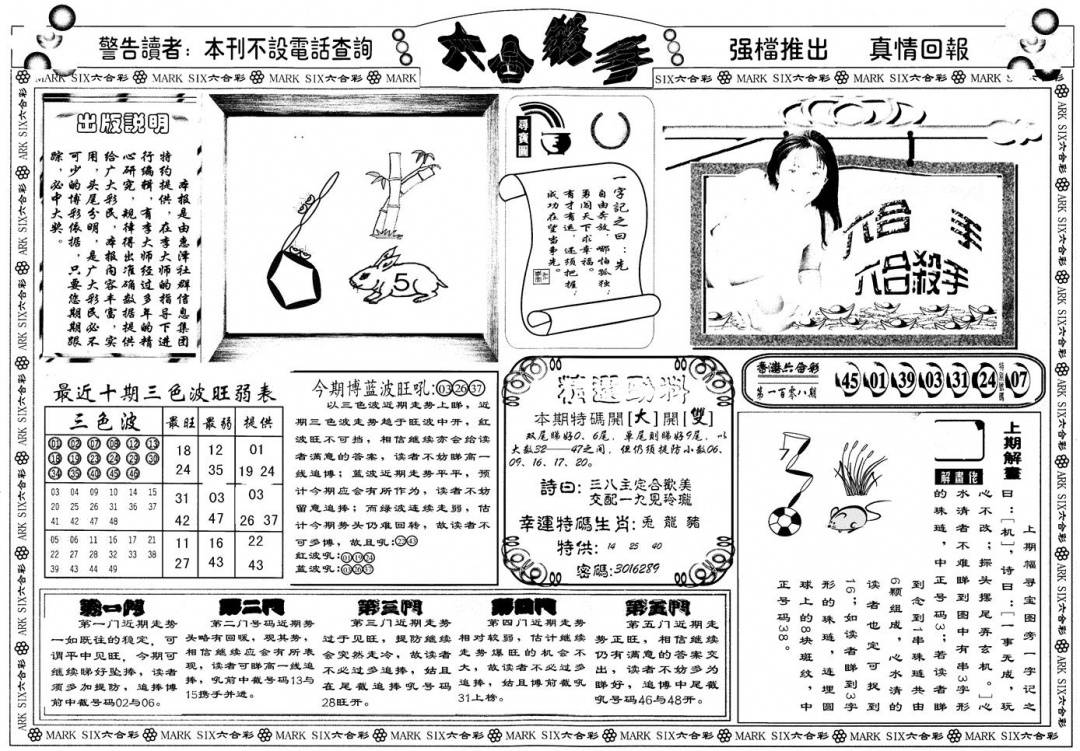 警告讀者：本刊不設電話查詢
六合殺手
强檔推出　真情回報
MARK SIX六合彩 MARK SIX六合彩 MARK SIX六合彩 MARK
SIX六合彩 MARK SIX六合彩 MARK SIX六合彩 MARK
出版説明
本报是由惠泽社群信息集团
特约提供，在李大师的指导下进
行编辑，有李大师经过多年的精
心研究，规律得出准确数据提供
给广大彩民，本报内容丰富，实
用，头尾分明，是广大彩民必不
可少的博彩依据，只要您期期跟
踪，必中大奖。
5
尋寶圖
一字記之曰：先
自由奔放，哪怕孤独；
勇闯天下求幸福。
有才有运，还须把握，
成功在望当争先。
六合 手
六合殺手
香港六合彩
第一百零八期
45 01 39 03 31 24
特别號碼
07
最近十期三色波旺弱表
三色波 最旺 最弱 提供
01 02 07 08 12 13
18 19 23 24 29 30
34 35 40 45 46
18 12 01
24 35 19 24
03 04 09 10 14 15
20 25 26 31 36 37
41 42 47 48
31 03 03
42 47 26 37
05 06 11 16 17 21
22 27 28 32 33 38
39 43 44 49
11 16 22
27 43 43
今期博蓝波旺吼：03 26 37
以三色波近期走势上睇，近
期三色波走势趋于旺波中开，红
波旺不可挡，相信继续亦会给读
者满意的答案，读者不妨睇高一
线追博；蓝波近期走势平平，预
计今期应会有所作为，读者不妨
留意追捧；而绿波连续走弱，估
计今期势头仍难回转，故读者不
可多博，故且吼：22 43
红波吼：01 19 24
蓝波吼：03 26 37
精選勁料
本期特碼開[大]開[雙]
双尾睇好0、6尾，单尾则睇好9尾，以
大数32——47之间，但仍须提防小数06、
09、16、17、20。
詩曰：三八主定合歡美
交配一九見玲瓏
幸運特碼生肖：兎 龍 豬
特供：14 25 40
密碼：3016289
上期解畫
解畫佬
上期福寻宝图旁一字记之
曰：[机]，诗曰：[一事无成，玩
心不改；探头摆尾弄玄机。]心
水清者不难睇到图中有串3字形
的珠琏，中正号码3；若读者睇
到念到1串珠琏共由
6颗组成，心水清的
读者也定可捉到
16；如读者睇到3字
形的珠琏，连埋圆
球上的8块斑纹，中
正号码38。
第一門
第一门近期走势
一如既往的稳定，可
谓平中见旺，今期可
继续睇好坠捧，读者
须多加提防，追捧博
前中截号码02与06。
第二門
第二门号码近期势
头略有回暖，观其势，
相信继续应会有所表
现，读者可睇高一线追
捧，吼前中截号码13与
15携手并进。
第三門
第三门近期走势
过于见旺，提防继续
会突然走冷，故读者
不必过多追捧，姑且
在尾截追捧吼号码
28旺开。
第四門
第四门近期走势
相对较弱，估计继续
走势爆旺的机会不
大，故读者不必过多
追捧，姑且博前截吼
31上榜。
第五門
第五门近期走
势正旺，相信继续
仍有满意的答案交
出，读者不妨多为
睇好，追博中尾截
吼号码46与48开。
MARK SIX六合彩 MARK SIX六合彩 MARK SIX六合彩 MARK SIX六合彩 MARK SIX六合彩 MARK SIX六合彩 MARK SIX六合彩 MARK SIX六合彩 MARK SIX六合彩